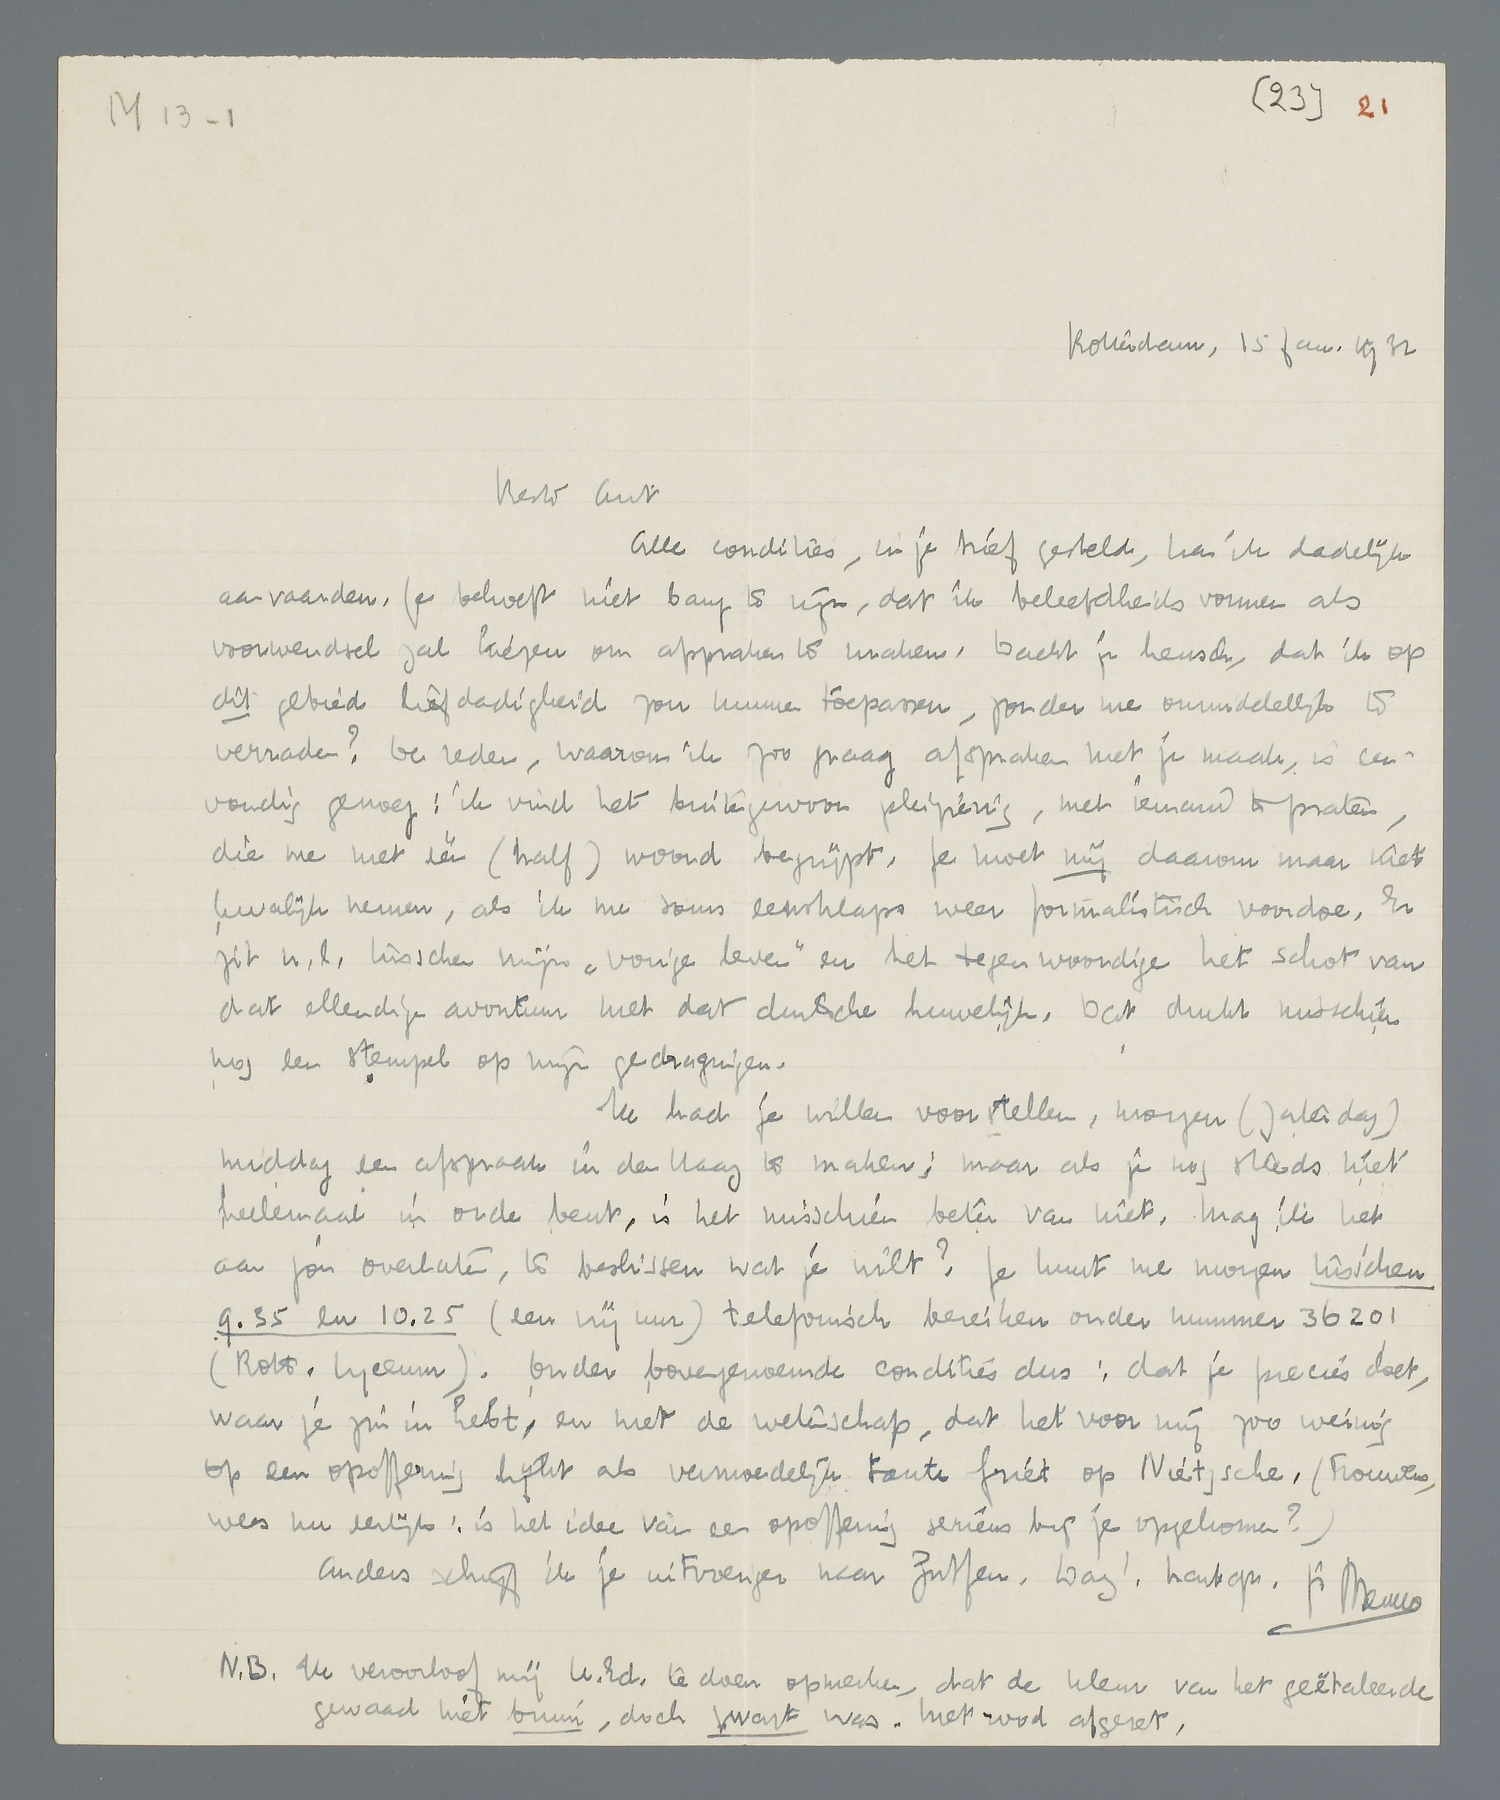 M 13-1
[23] 21
Rotterdam, 15 Jan. 1932
Beste Ant
Alle condities, in je brief gesteld, kan ik dadelijk
aanvaarden. Je behoeft niet bang te zijn, dat ik beleefdheidsvormen als
voorwendsel zal kiezen om afspraken te maken. Dacht je heusch, dat ik op
dit gebied liefdadigheid zou kunnen toepassen, zonder me onmiddellijk te
verraden? De reden, waarom ik zoo graag afspraken met je maak, is een-
voudig genoeg: ik vind het buitengewoon pleizierig, met iemand te praten,
die me met één (half) woord begrijpt. Je moet mij daarom maar niet
kwalijk nemen, als ik me soms eensklaps weer formalistisch voordoe. Er
zit n.l. tusschen mijn „vorige leven” en het tegenwoordige het schot van
dat ellendige avontuur met dat duitsche huwelijk. Dat drukt misschien
nog een stempel op mijn gedragingen.
Ik had je willen voorstellen, morgen (Zaterdag)
middag een afspraak in den Haag te maken; maar als je nog steeds niet
heelemaal in orde bent, is het misschien beter van niet. Mag ik het
aan jou overlaten, te beslissen wat je wilt? Je kunt me morgen tusschen
9.35 en 10.25 (een vrij uur) telefonisch bereiken onder nummer 36201
(Rott. Lyceum). Onder bovengenoemde condities dus: dat je precies doet,
waar je zin in hebt, en met de wetenschap, dat het voor mij zoo weinig
op een opoffering lijkt als vermoedelijk tante Griet op Nietzsche. (Trouwens,
wees nu eerlijk: is het idee van een opoffering serieus bij je opgekomen?)
Anders schrijf ik je uitvoeriger naar Zutfen. Dag! hart. gr. je Menno
N.B. Ik veroorloof mij U.Ed. te doen opmerken, dat de kleur van het geëtaleerde
gewaad niet bruin, doch zwart was. Met rood afgezet.